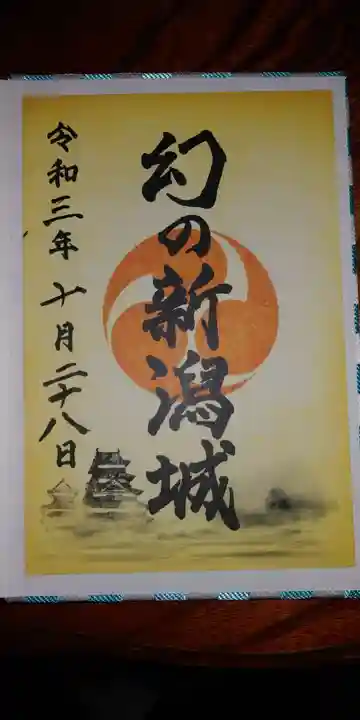 幻の新潟城
令和三年十月二十八日